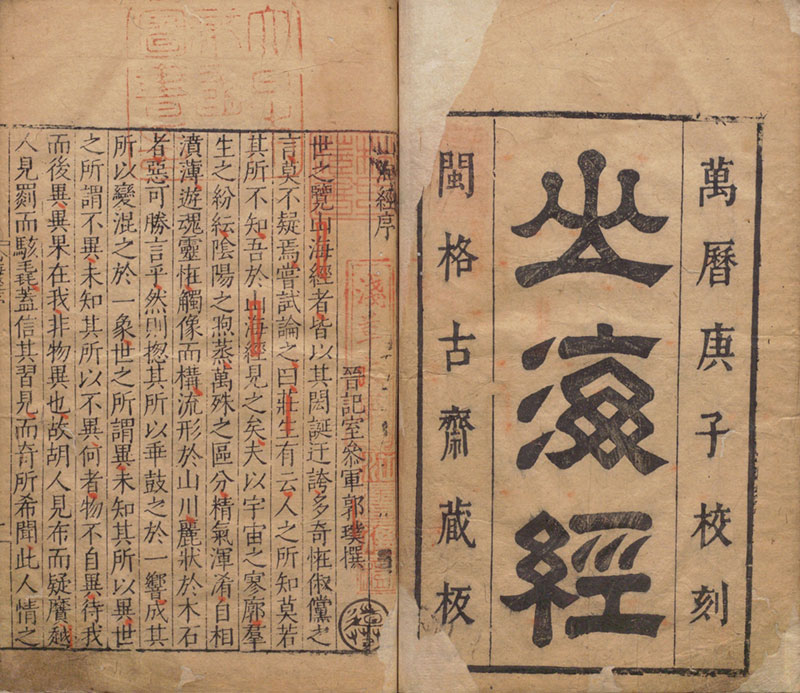 萬曆庚子校刻
山海經
閩格古齋藏板
山海經序
晉記室參軍郭璞撰
世之覽山海經者皆以其閎誕迂誇多奇恠俶儻之
言莫不疑焉嘗試論之曰莊生有云人之所知莫若
其所不知吾於山海經見之矣夫以宇宙之寥廓羣
生之紛紜陰陽之喣蒸萬殊之區分精氣渾淆自相
濆薄遊魂靈恠觸像而構流形於山川麗狀於木石
者惡可勝言乎然則揔其所以乖鼓之於一響成其
所以變混之於一象世之所謂異未知其所以異世
之所謂不異未知其所以不異何者物不自異待我
而後異異果在我非物異也故胡人見布而疑黂越
人見罽而駭毳葢信其習見而奇所希聞此人情之